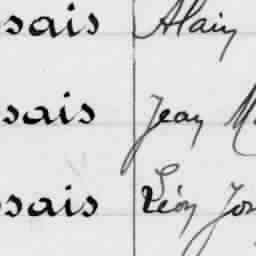 sais Alain
sais Jean M
sais Léon Jos